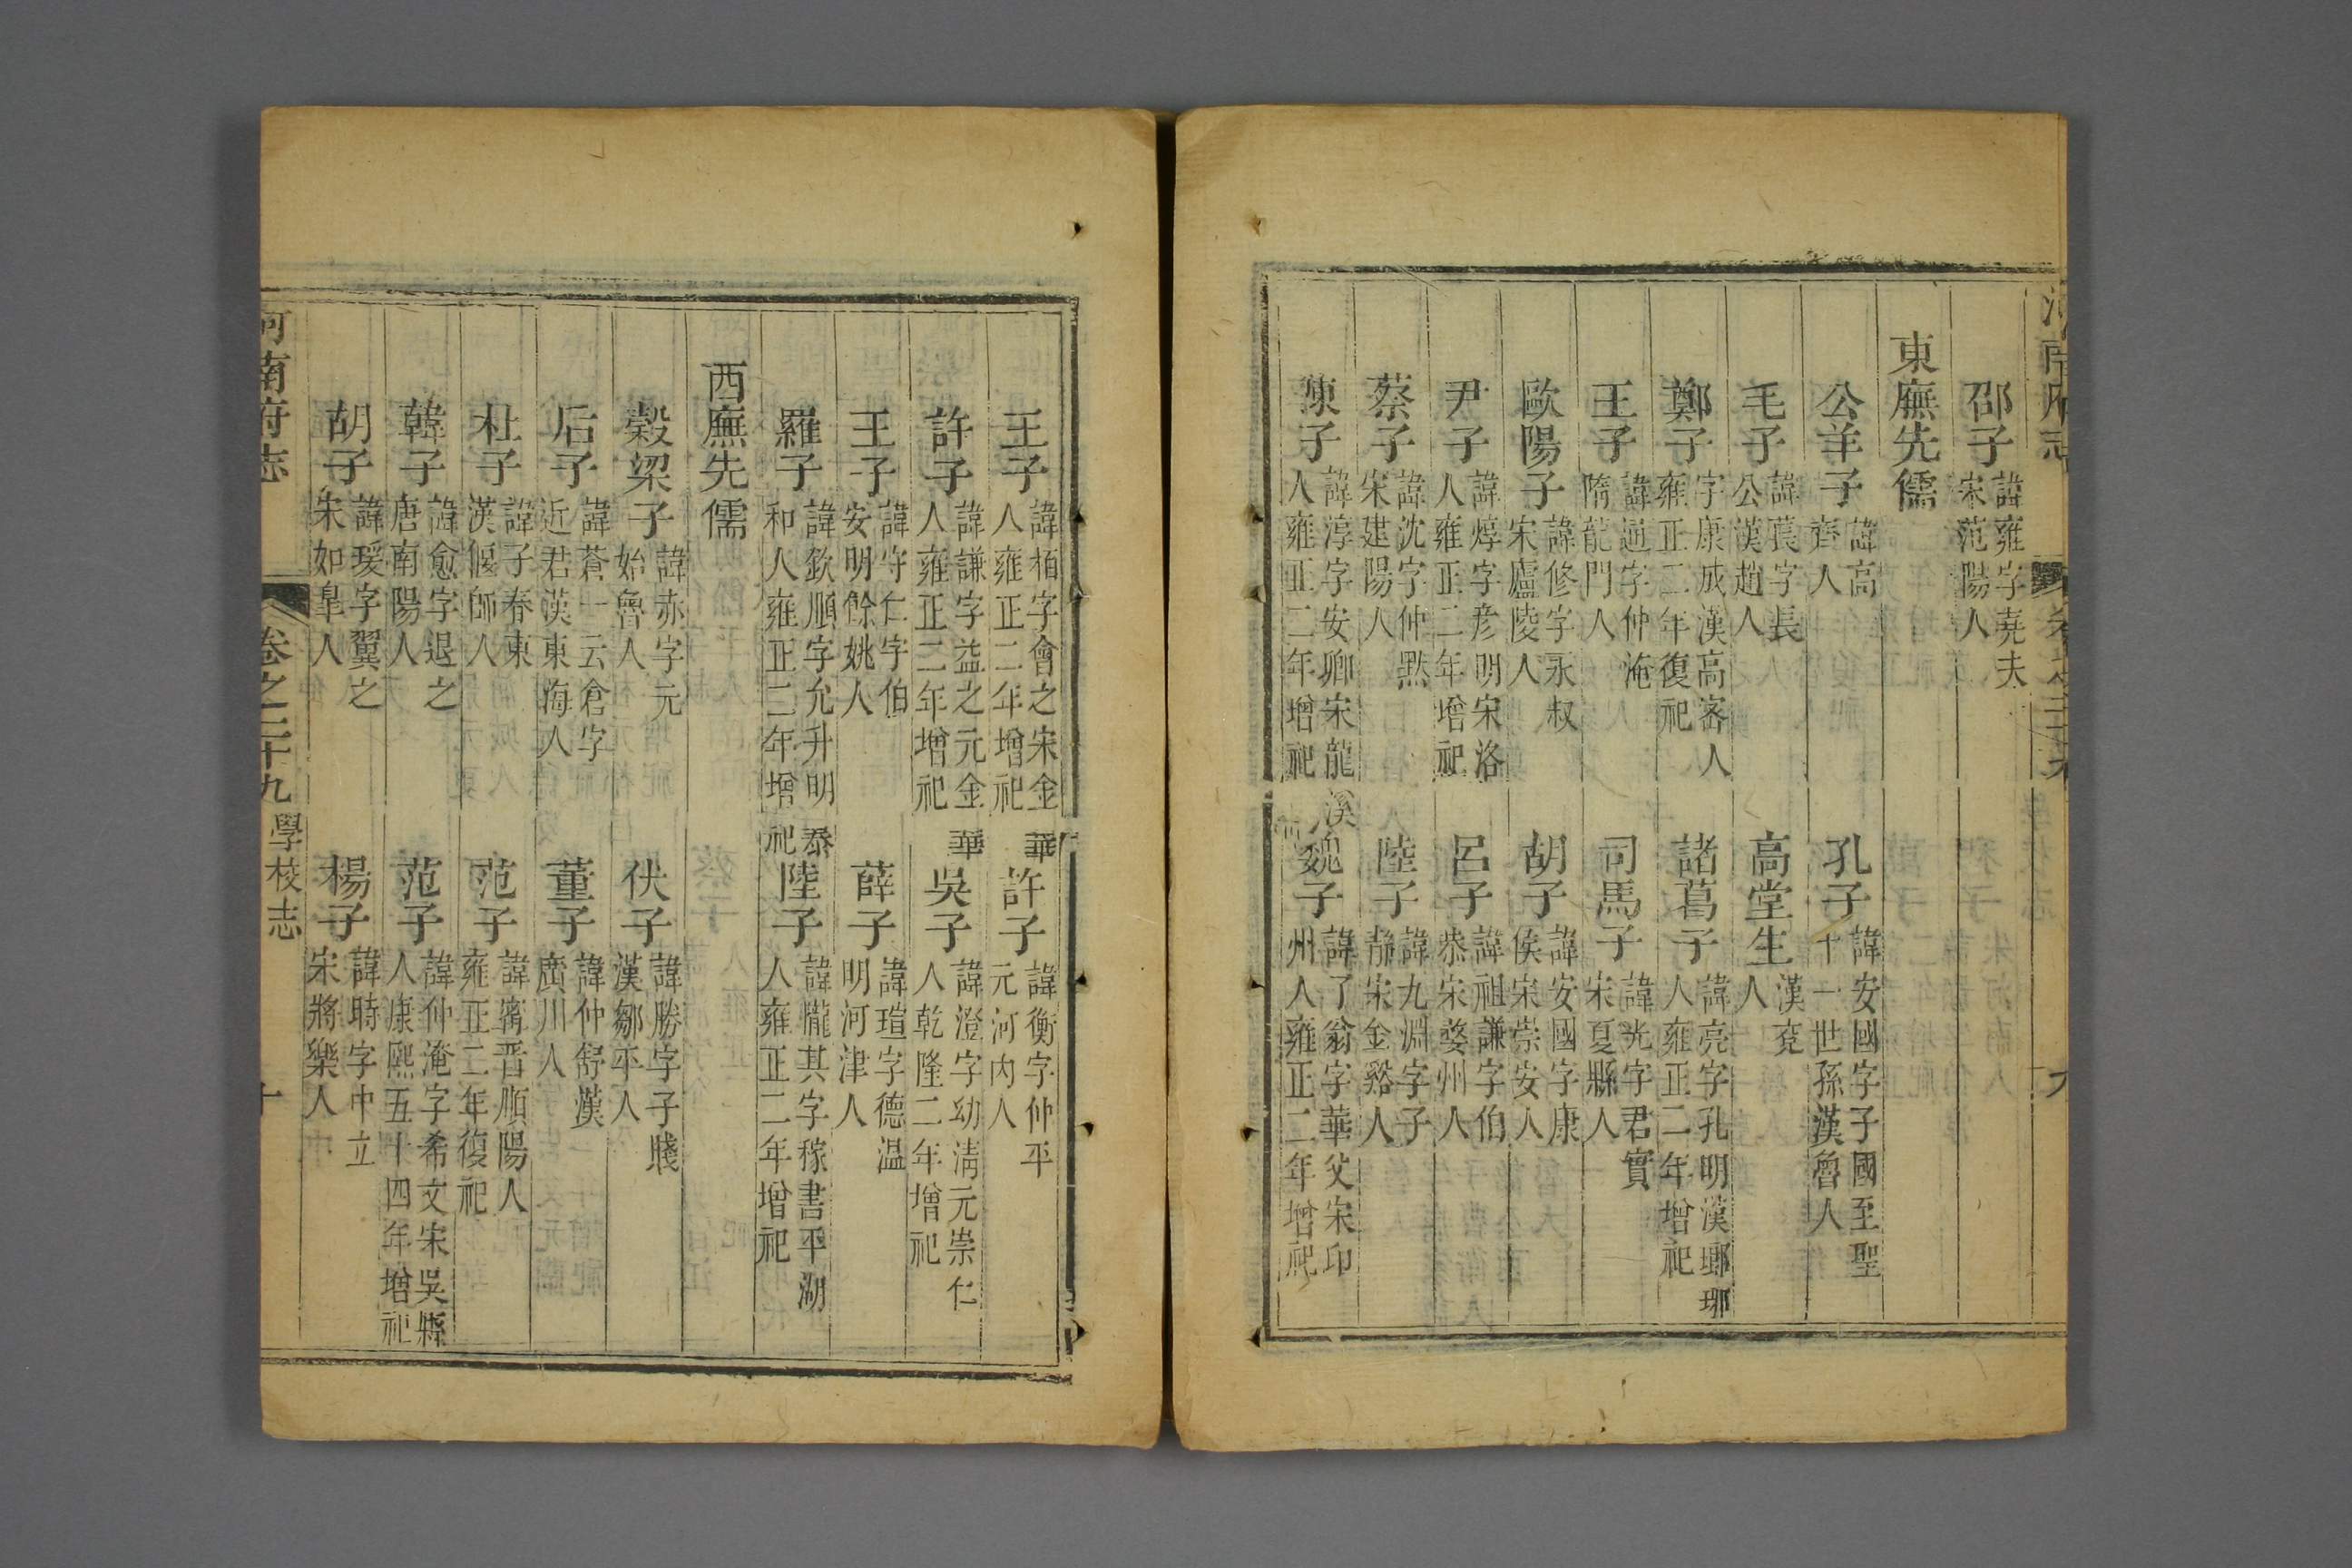 邵子諱雍字堯夫宋范陽人
東廡先儒
公羊子諱高齊人　孔子諱安國字子國至聖十一世孫漢魯人
毛子諱萇字長公漢趙人　高堂生漢兗人
鄭子字康成漢高密人雍正二年復祀　諸葛子諱亮字孔明漢瑯琊人雍正二年增祀
王子諱通字仲淹隋龍門人　司馬子諱光字君實宋夏縣人
歐陽子諱修字永叔宋廬陵人　胡子諱安國字康侯宋崇安人
尹子諱焞字彥明宋洛人雍正二年增祀　呂子諱祖謙字伯恭宋婺州人
蔡子諱沈字仲黙宋建陽人　陸子諱九淵字子靜宋金谿人
陳子諱淳字安卿宋龍溪人雍正二年增祀　魏子諱了翁字華父宋卭州人雍正二年增祀
王子諱栢字會之宋金華人雍正二年增祀　許子諱衡字仲平元河内人
許子諱謙字益之元金華人雍正二年增祀　吳子諱澄字幼淸元崇仁人乾隆二年增祀
王子諱守仁字伯安明餘姚人　薛子諱瑄字德温明河津人
羅子諱欽順字允升明泰和人雍正二年增祀　陸子諱隴其字稼書平湖人雍正二年增祀
西廡先儒
穀梁子諱赤字元始魯人　伏子諱勝字子賤漢鄒平人
后子諱蒼一云倉字近君漢東海人　董子諱仲舒漢廣川人
杜子諱子春東漢偃師人　范子諱甯晋順陽人雍正二年復祀
韓子諱愈字退之唐南陽人　范子諱仲淹字希文宋吳縣人康熙五十四年增祀
胡子諱瑗字翼之宋如臯人　楊子諱時字中立宋將樂人
河南府志　卷之二十九　學校志　十